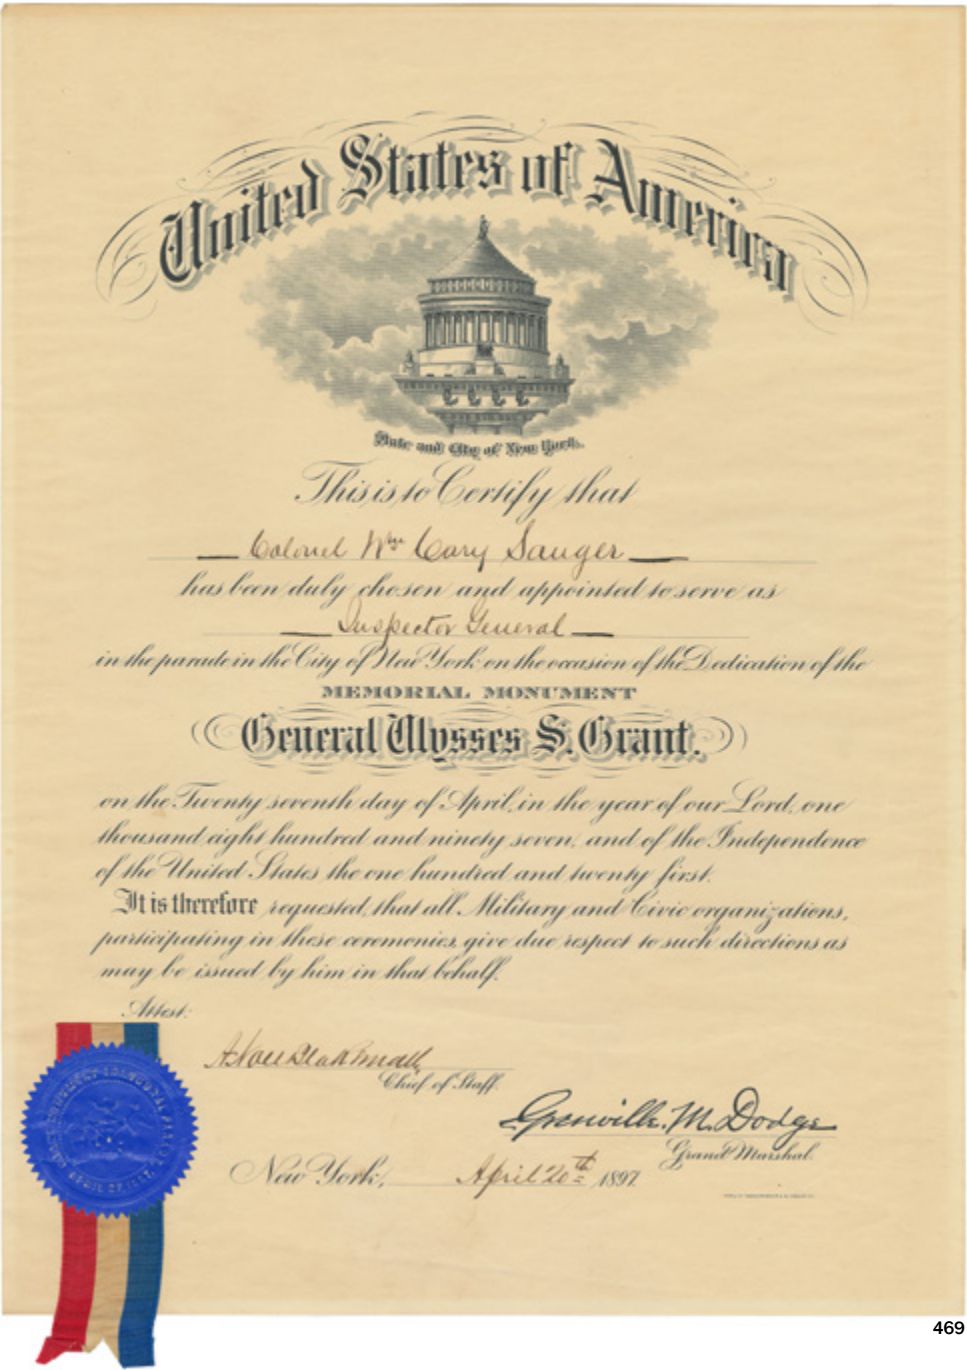 United States of America
State and City of New York.
This is to Certify that
Colonel Wm Cary Sanger
has been duly chosen and appointed to serve as
Inspector General
in the parade in the City of New York on the occasion of the Dedication of the
MEMORIAL MONUMENT
General Ulysses S. Grant.
on the Twenty seventh day of April, in the year of our Lord, one
thousand eight hundred and ninety seven, and of the Independence
of the United States the one hundred and twenty first.
It is therefore requested, that all Military and Civic organizations,
participating in these ceremonies, give due respect to such directions as
may be issued by him in that behalf.
Attest:
Chief of Staff.
Grenville M. Dodge
Grand Marshal.
New York, April 20th 1897
APRIL 27, 1897
469